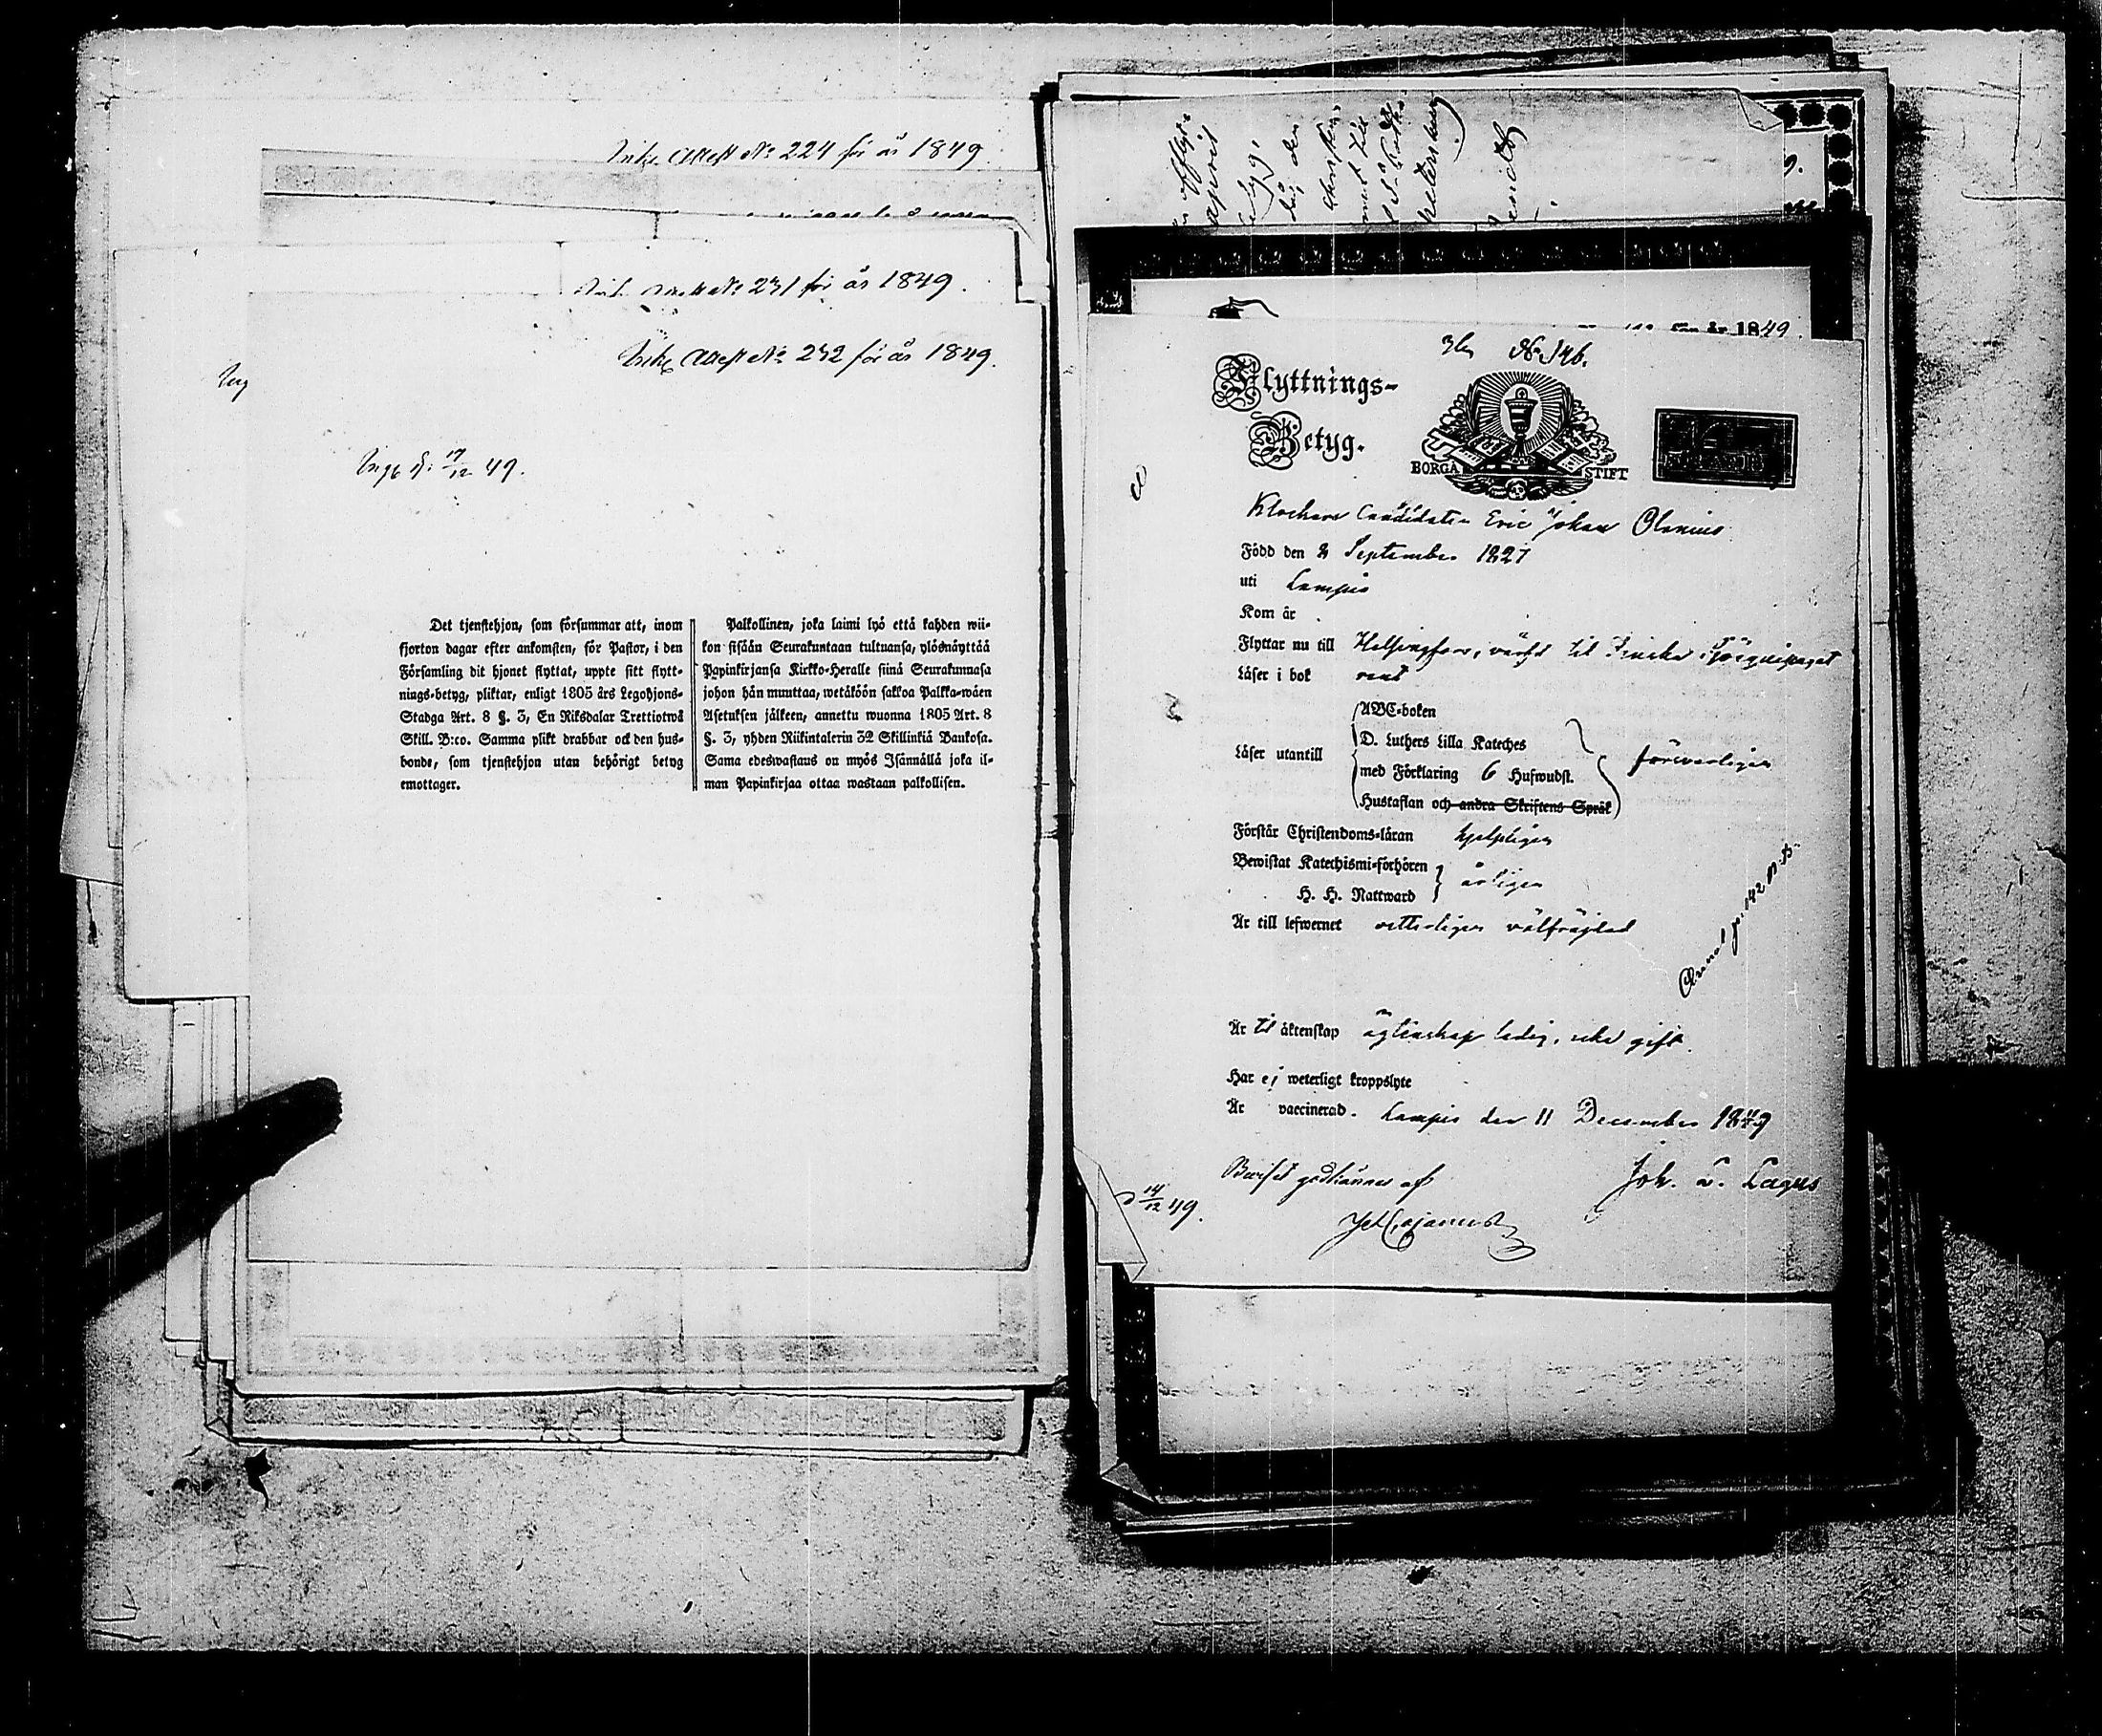 Ink. Attest No 224 för år 1849.
No 231 för år 1849.
Ink. Attest No 232 för år 1849.
Ing
17/12 49.
Det tjenstehjon, som försummar att, inom
fjorton dagar efter ankomsten, för Pastor, i den
Församling dit hjonet flyttat, uppte sitt flytt-
nings-betyg, pliktar, enligt 1805 års Legohjons-
Stadga Art. 8 §. 3, En Riksdalar Trettiotwå
Skill. B:co. Samma plikt drabbar ock den hus-
bonde, som tjenstehjon utan behörigt betyg
emottager.
Palkollinen, joka laimi lyö että kahden wii-
kon sisään Seurakuntaan tultuansa, ylösnäyttää
Papinkirjansa Kirkko-Heralle siinä Seurakunnasa
johon hän muuttaa, wetäköön sakkoa Palkka-wäen
Asetuksen jälkeen, annettu wuonna 1805 Art. 8
§. 3, yhden Riikintalerin 32 Skillinkiä Bankosa.
Sama edeswastaus on myös Isännällä joka il-
man Papinkirjaa ottaa wastaan palkollisen.
för år 1849.
Flyttnings-
Betyg.
BORGÅ STIFT
Klockare Candidaten Eric Johan Olonius
Född den 2 September 1827
uti Lampis
Kom år
Flyttar nu till Helsingfors, til Finska
Läser i bok rent
Läser utantill
ABC-boken
D. Luthers Lilla Kateches
med Förklaring 6 Hufwudst.
Hustaflan och andra Skriftens Språk
försvarligen
Förstår Christendoms-läran hjelpligen
Bewistat Katechismi-förhören
H. H. Nattward
årligen
Är till lefwernet välfrägdad
p. 142
Är til äktenskap ägtenskap ledig, icke gift.
Har ej weterligt kroppslyte
Är vaccinerad. Lampis den 11 December 1849
Joh. L. Lagus
Beviset godkännes af
14/12 49.